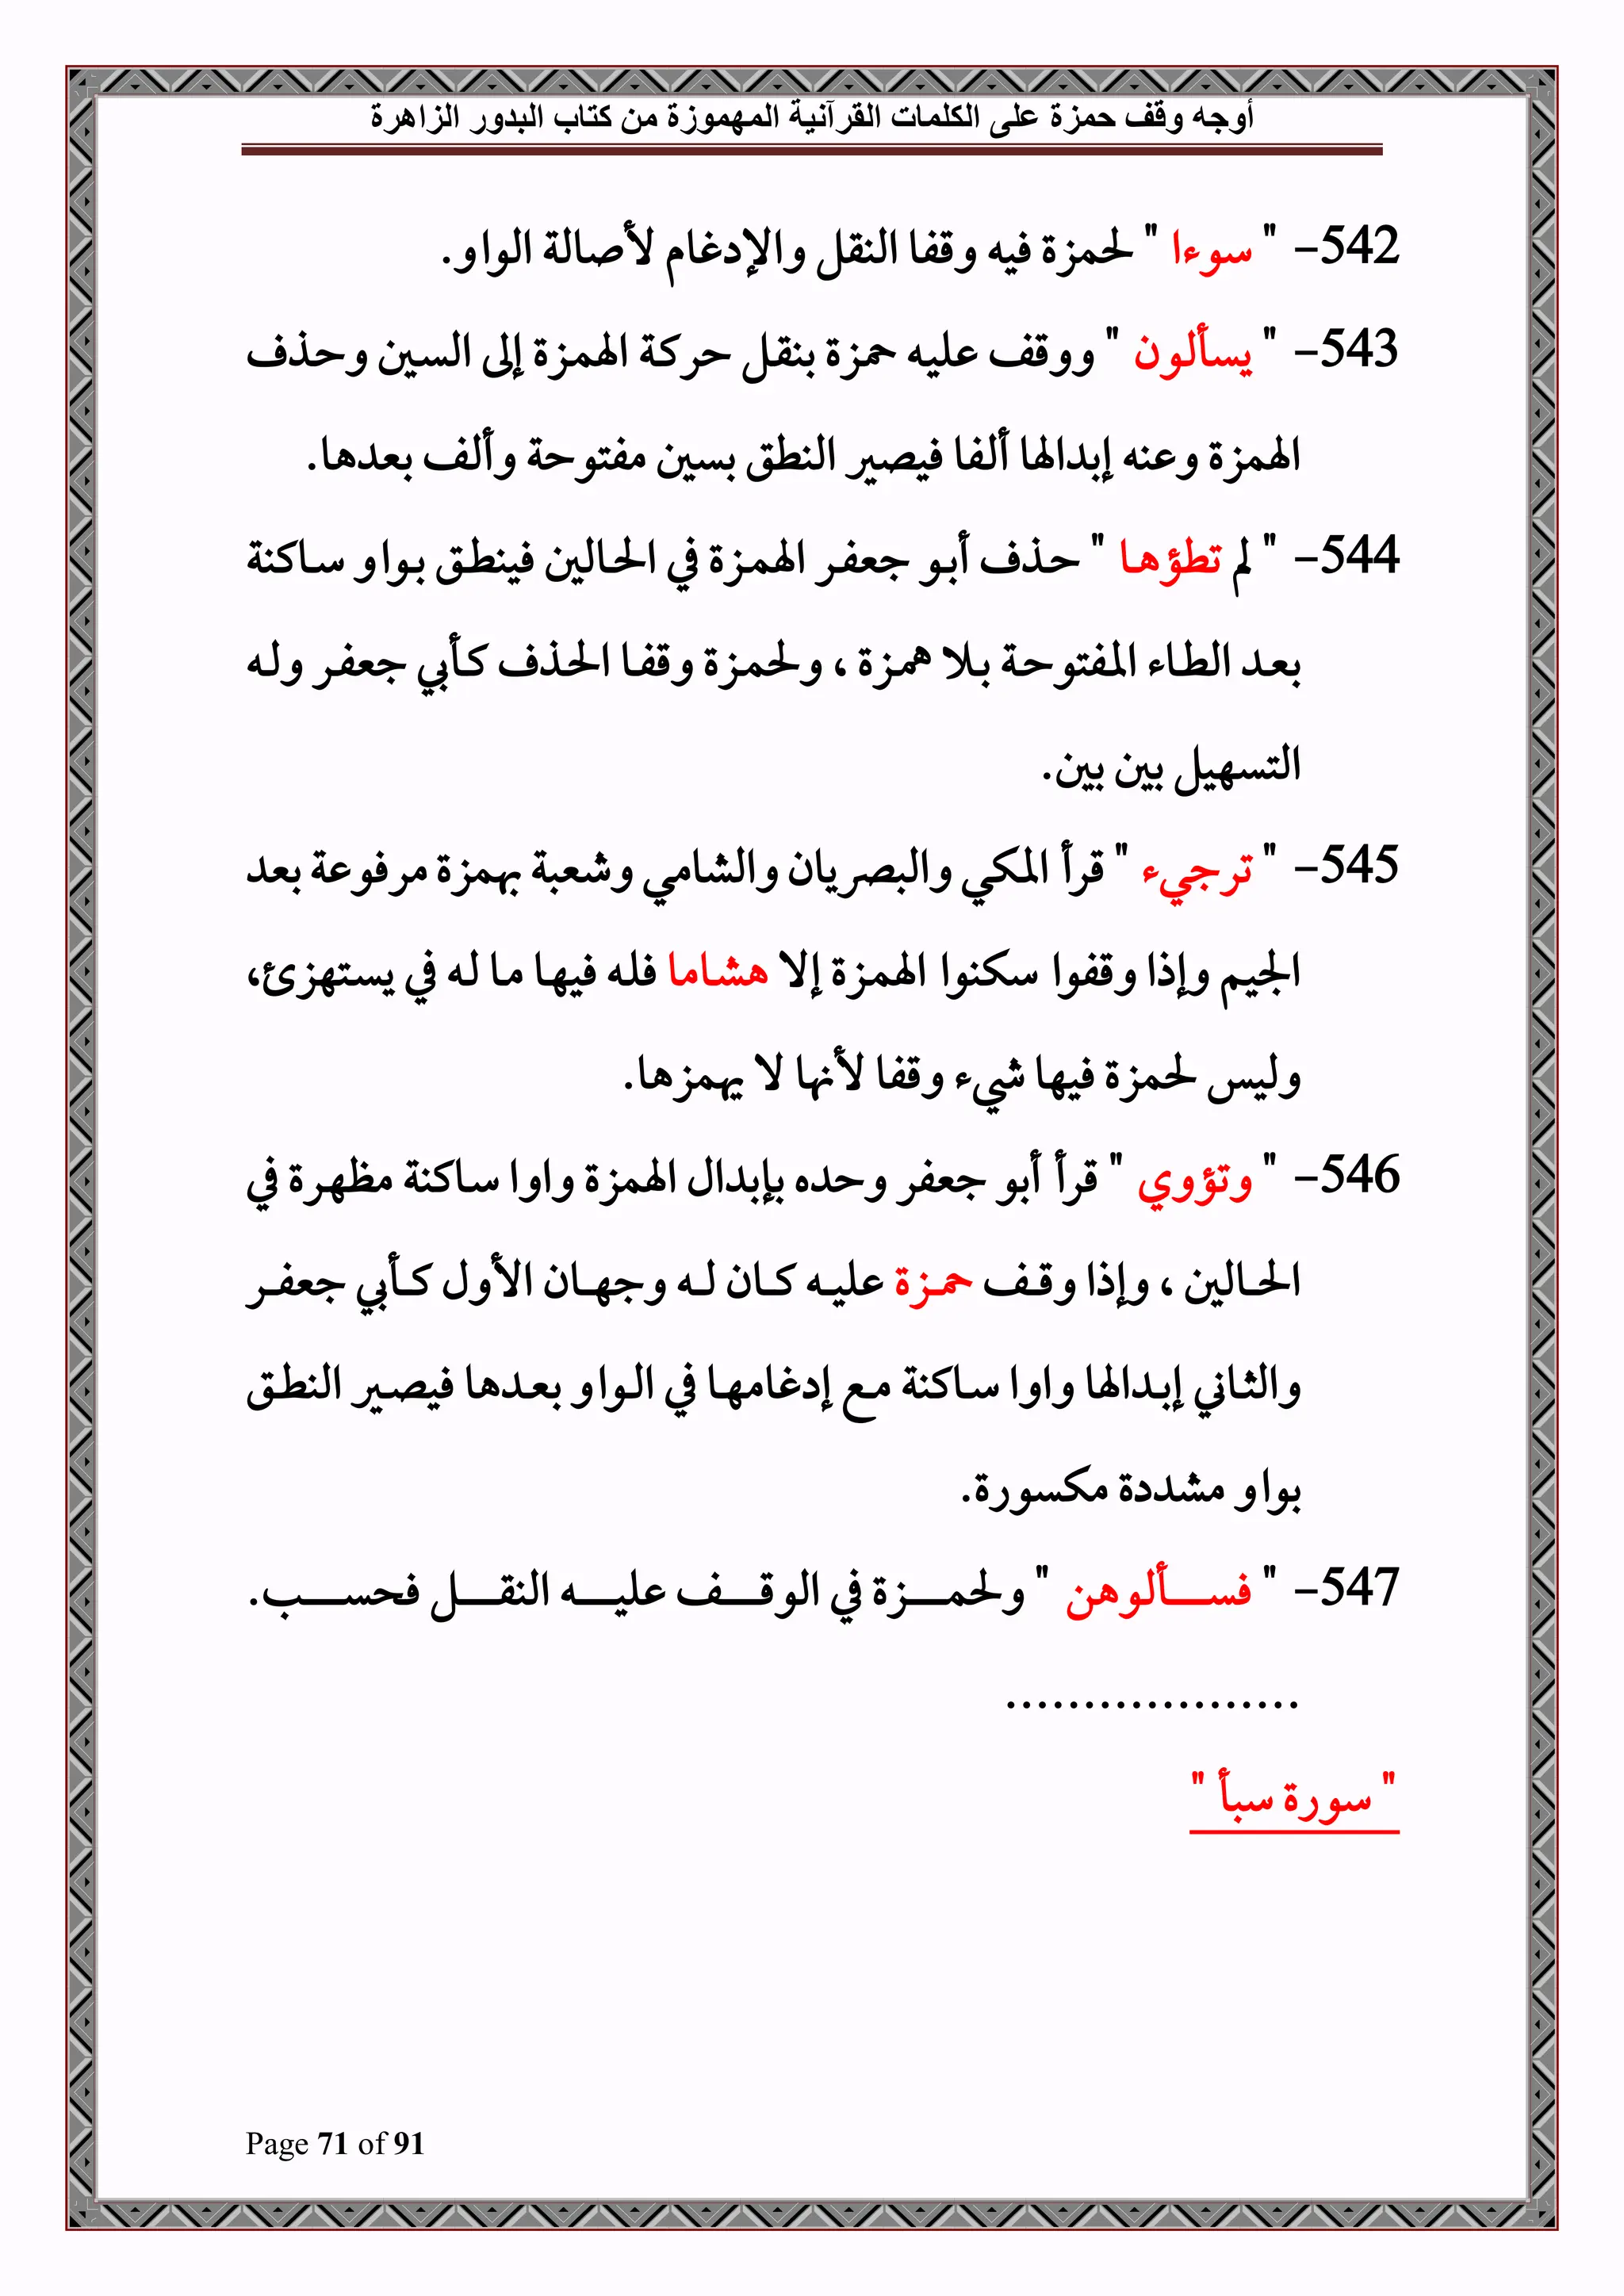 أوجه وقف حمزة على الكلمات القرآنية المهموزة من كتاب البدور الزاهرة
542- " سوءا " لحمزة فيه وقفا النقل والإدغام لأصالة الواو.
543- " يسألون " ووقف عليه حمزة بنقل حركة الهمزة إلى السين وحذف
الهمزة وعنه إبدالها ألفا فيصير النطق بسين مفتوحة وألف بعدها.
544- " لم تطؤها " حذف أبو جعفر الهمزة في الحالين فينطق بواو ساكنة
بعد الطاء المفتوحة بلا همزة ، ولحمزة وقفا الحذف كأبي جعفر وله
التسهيل بين بين.
545- " ترجيء " قرأ المكي والبصريان والشامي وشعبة بهمزة مرفوعة بعد
الجيم وإذا وقفوا سكنوا الهمزة إلا هشاما فله فيها ما له في يستهزئ،
وليس لحمزة فيها شيء وقفا لأنها لا يهمزها.
546- " وتؤوي " قرأ أبو جعفر وحده بإبدال الهمزة واوا ساكنة مظهرة في
الحالين ، وإذا وقف حمزة عليه كان له وجهان الأول كأبي جعفر
والثاني إبدالها واوا ساكنة مع إدغامها في الواو بعدها فيصير النطق
بواو مشددة مكسورة.
547- " فسألوهن " ولحمزة في الوقف عليه النقل فحسب.
...................
" سورة سبأ "
Page 71 of 91